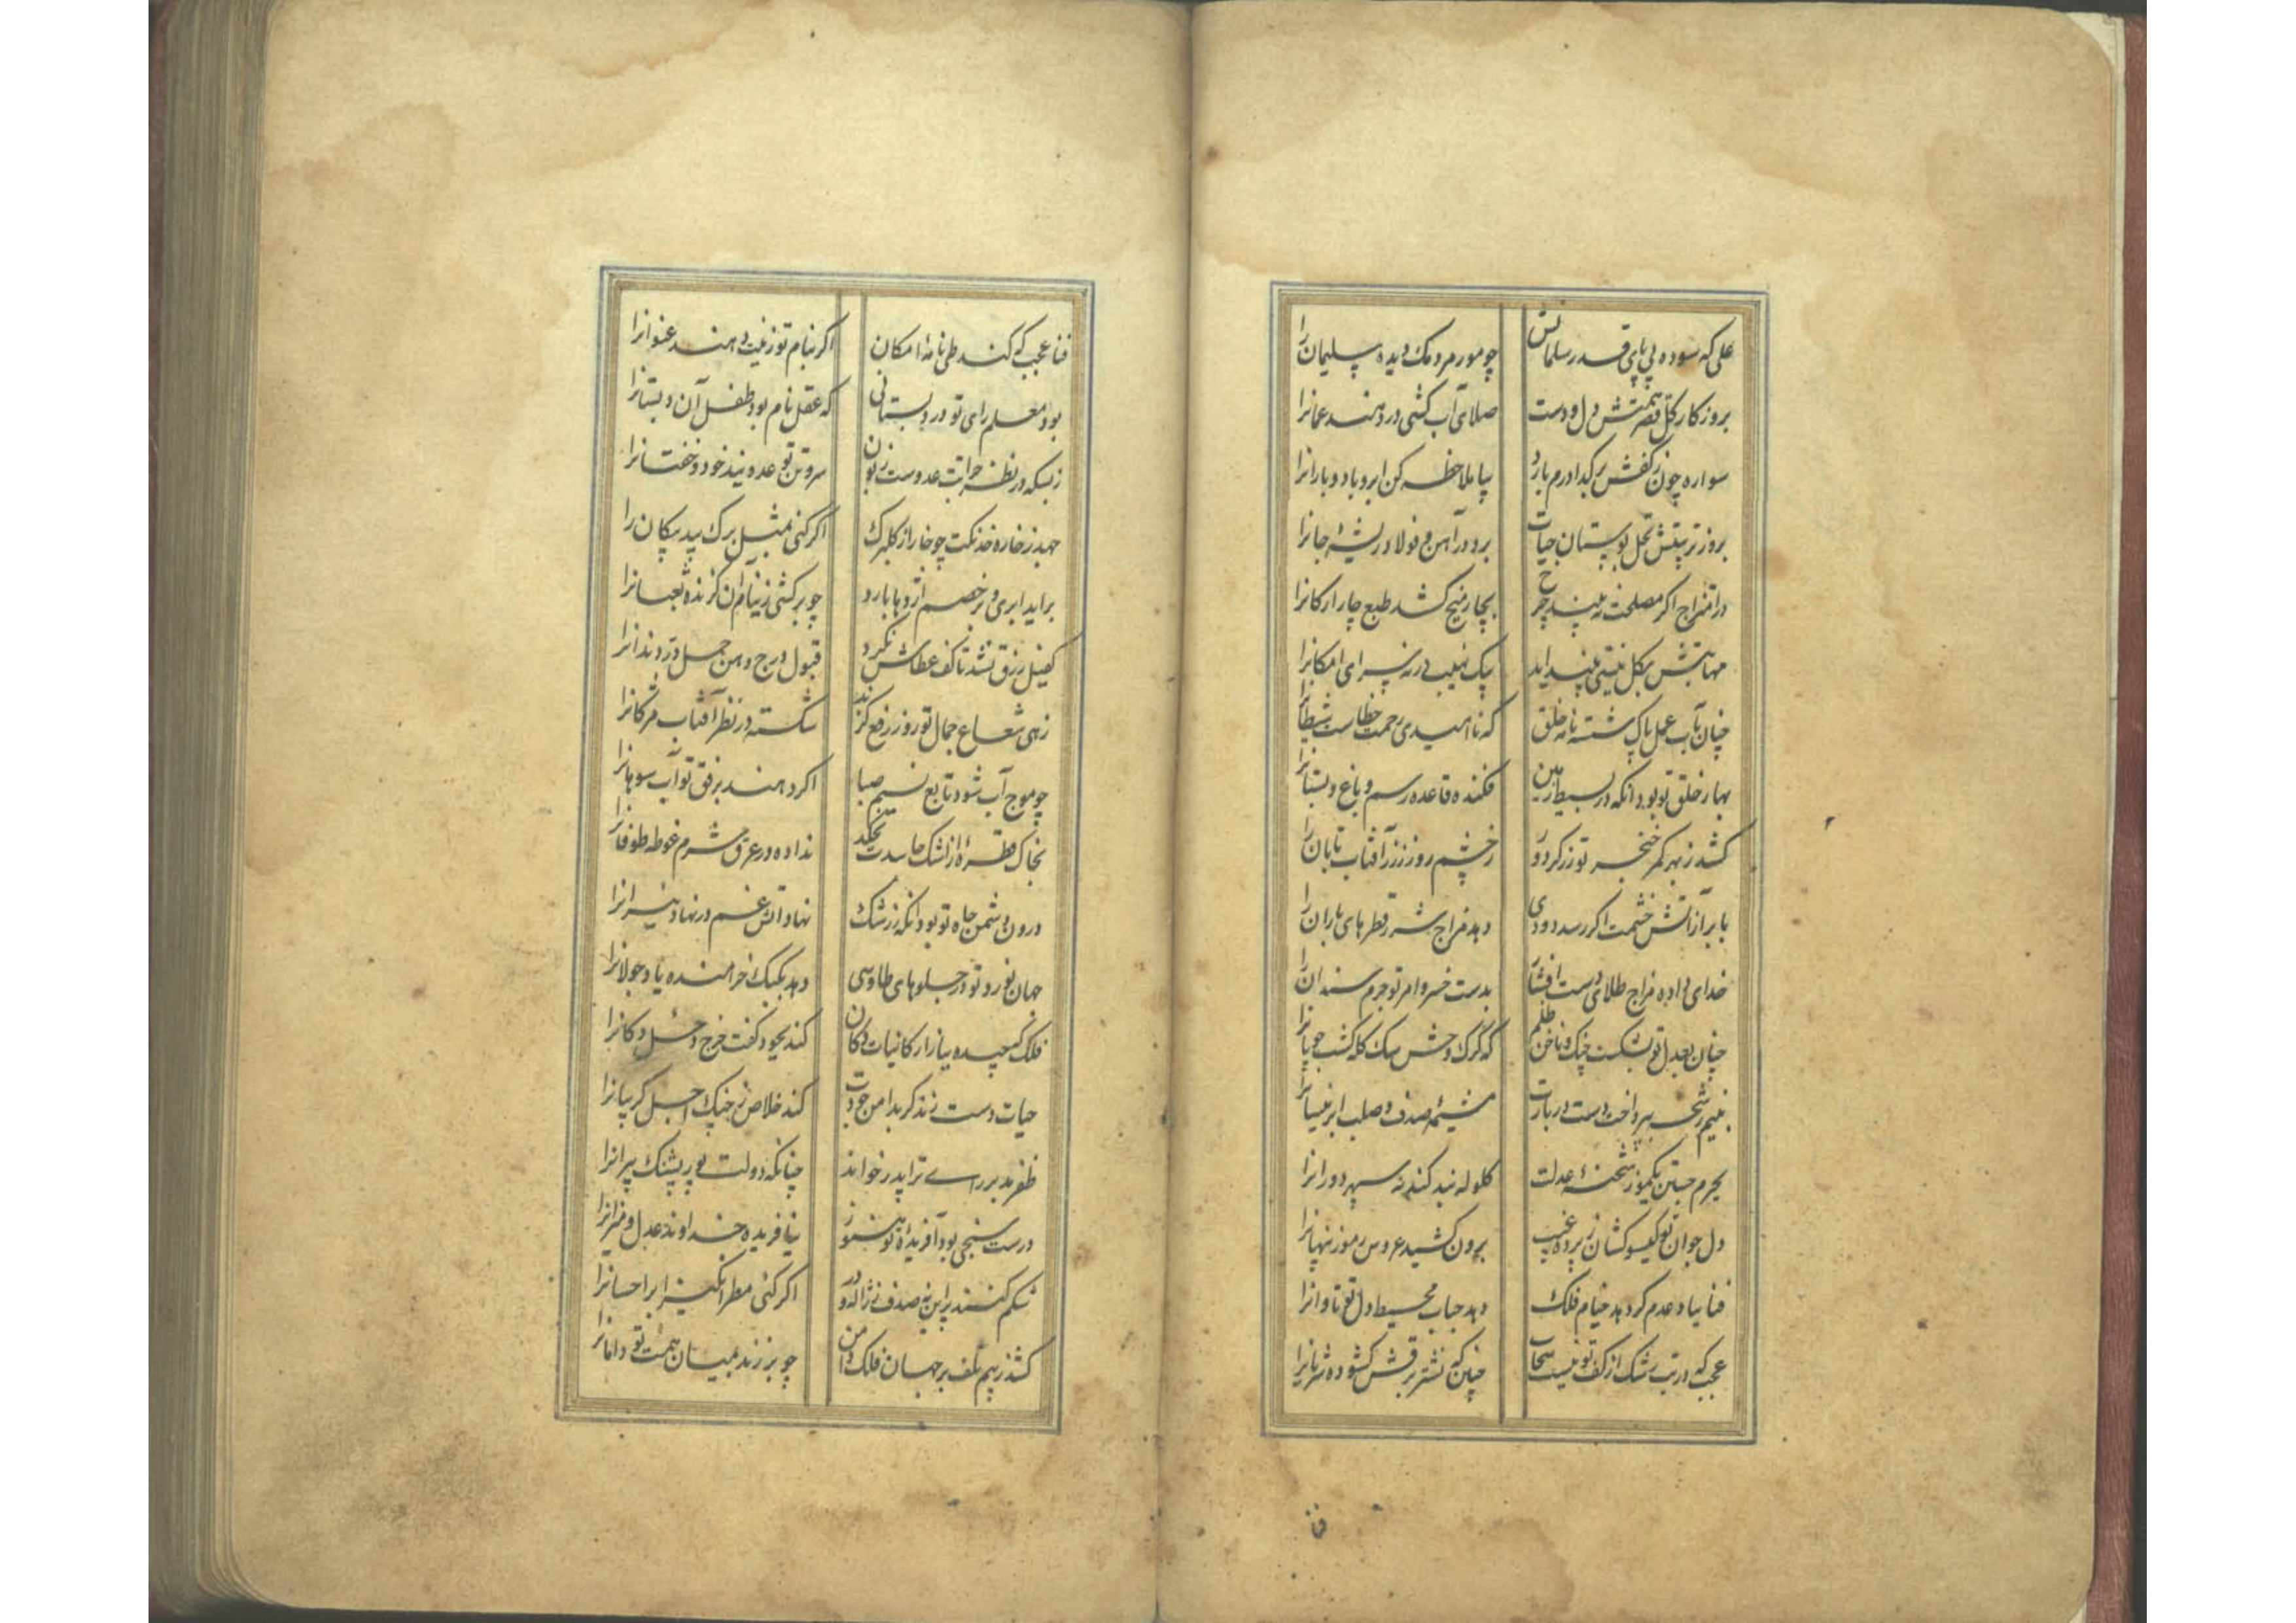 علی که سوده پی پای قدر سلمانش چو مور مردمک دیده سلیمان را
بروز کار کل قصر همتش دل و دست صلای آب کشی در دهند عمانرا
سواره چون ز کفش بر کدا درم بارد بیا ملاحظه کن ابر و باد و بارانرا
بروز تربیتش نخل بوستان حیات برد در آهن و فولاد ریشه جانرا
در امتزاج اکر مصلحت نه بیند چرخ بچار میخ کشد طبع چار ارکانرا
مهابتش بکل نیستی بینداید بیک نهیب در نه سرای امکانرا
چنان بآب عمل پاک شسته نامه خلق که ناامیدی رحمت خطاست شیطانرا
بهار خلق تو بود آنکه در بسیط زمین فکنده قاعده رسم و باغ و بستانرا
کشد ز بهر کمر خنجر تو زرکر دور ز خشم روز زر آفتاب تابان را
بابر از آتش خشمت اکر رسد دودی دهد مزاج شرر قطرهای باران را
خدای داده مزاج طلای دست افشار بدست خسرو امر تو جرم سندان را
چنان بعدل تو بشکست چنک و ناخن ظلم که کرک وحش سک کله کشت چوپانرا
بنیم رشحه بپرداخت دست دربارت مشیمه صدف و صلب ابر نیسانرا
بجرم جستن یکموز شحنه عدلت کلوله بند کند نه سپهر دورانرا
دل جوان تو کیسو کشان ز پرده غیب برون کشید عروس رموز پنهانرا
فنا بباد عدم کر دهد خیام فلک دهد حباب محیط دل تو تاوانرا
عجب که در تب رشک از کف تو نیست سحاب چنین که نشتر برقش کشوده شریانرا
فنا
فنا عجب که کند طی نامه امکان اکر بنام تو زینت دهند عنوانرا
بود معلم رای تو در دبستانی که عقل نام بود طفل آن دبستانرا
ز بسکه در نظر جراتت عدوست زبون سر و تن تو عدو نیند خود و خفتانرا
جهد ز خاره خدنکت چو خار از کلبرک اکر کنی بمثل برک بید پیکان را
براید ابری و بر خصم اژدها بارد چو برکشی ز نیام آن کزنده ثعبانرا
کفیل رزق نشد تا کف عطاش نکرد قبول درج دهن حمل در دندانرا
زهی شعاع جمال تو روز رفع کزند شکسته در نظر آفتاب مژکانرا
چو موج آب شود تابع نسیم صبا اکر دهند برفق تو آب سوهانرا
بخاک قطره از اشک حاسدت نچکد نداده در عرق شرم غوطه طوفانرا
درون دشمن جاه تو بود آنکه ز رشک نهاد آتش غم در نهاد نیرانرا
جهان نورد تو در جلوهای طاوسی دهد بکبک خرامنده یاد جولانرا
فلک نچیده ببازار کائنات دکان کند بجود کفت خرج دخل دکانرا
حیات دست زند کر بدامن جودت کند خلاص ز چنک اجل کریبانرا
ظفر مدبر رای ترا پدر خواند چنانکه دولت تو پور پشنک پیرانرا
درست سنجی بود آفریده تو هنوز نیافریده خداوند عدل و میزانرا
شکم کنند پر این نه صدف ز ژاله در اکر کنی مطر انکیز ابر احسانرا
کشد ز بیم تلف بر جهان فلک دامن چو بر زند بمیان همت تو دامانرا